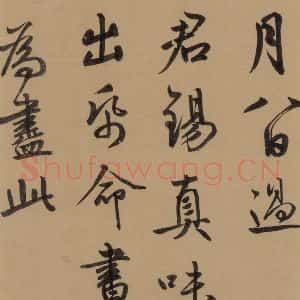 月八日過
君錫真味
出紙命書
為盡此
Shufawang.CN